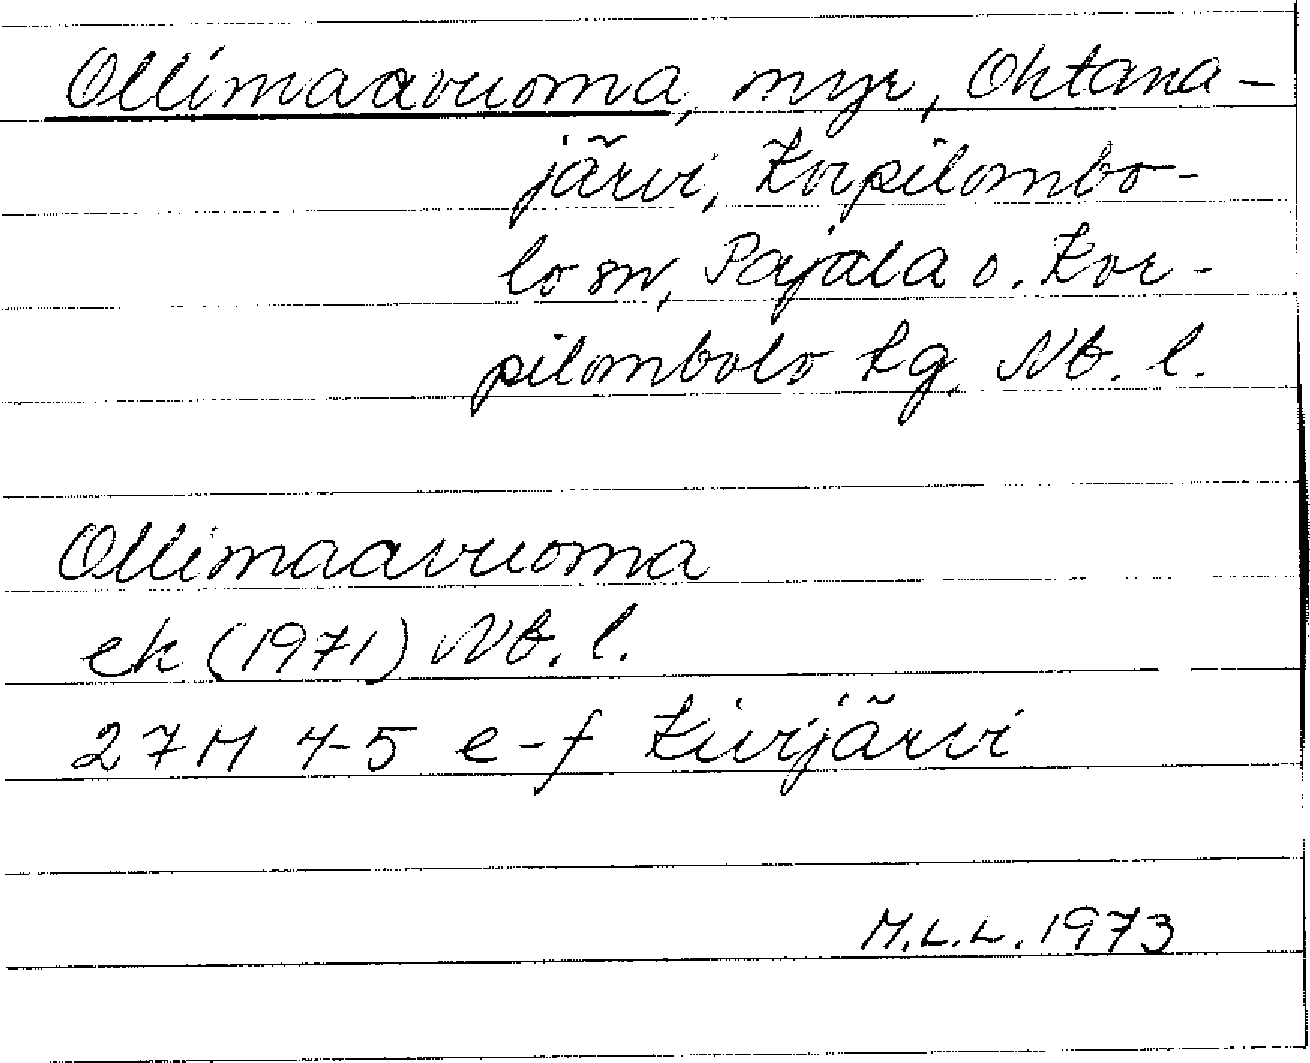 Ollimaavuoma, myr, Ohtana-
järvi, Korpilombo-
lo sn, Pajala o. Kor-
pilombolo kg. Nb. l.
Ollimaavuoma
ek (1971) Nb. l.
27M 4-5 e-f Kivijärvi
M.L.L. 1973